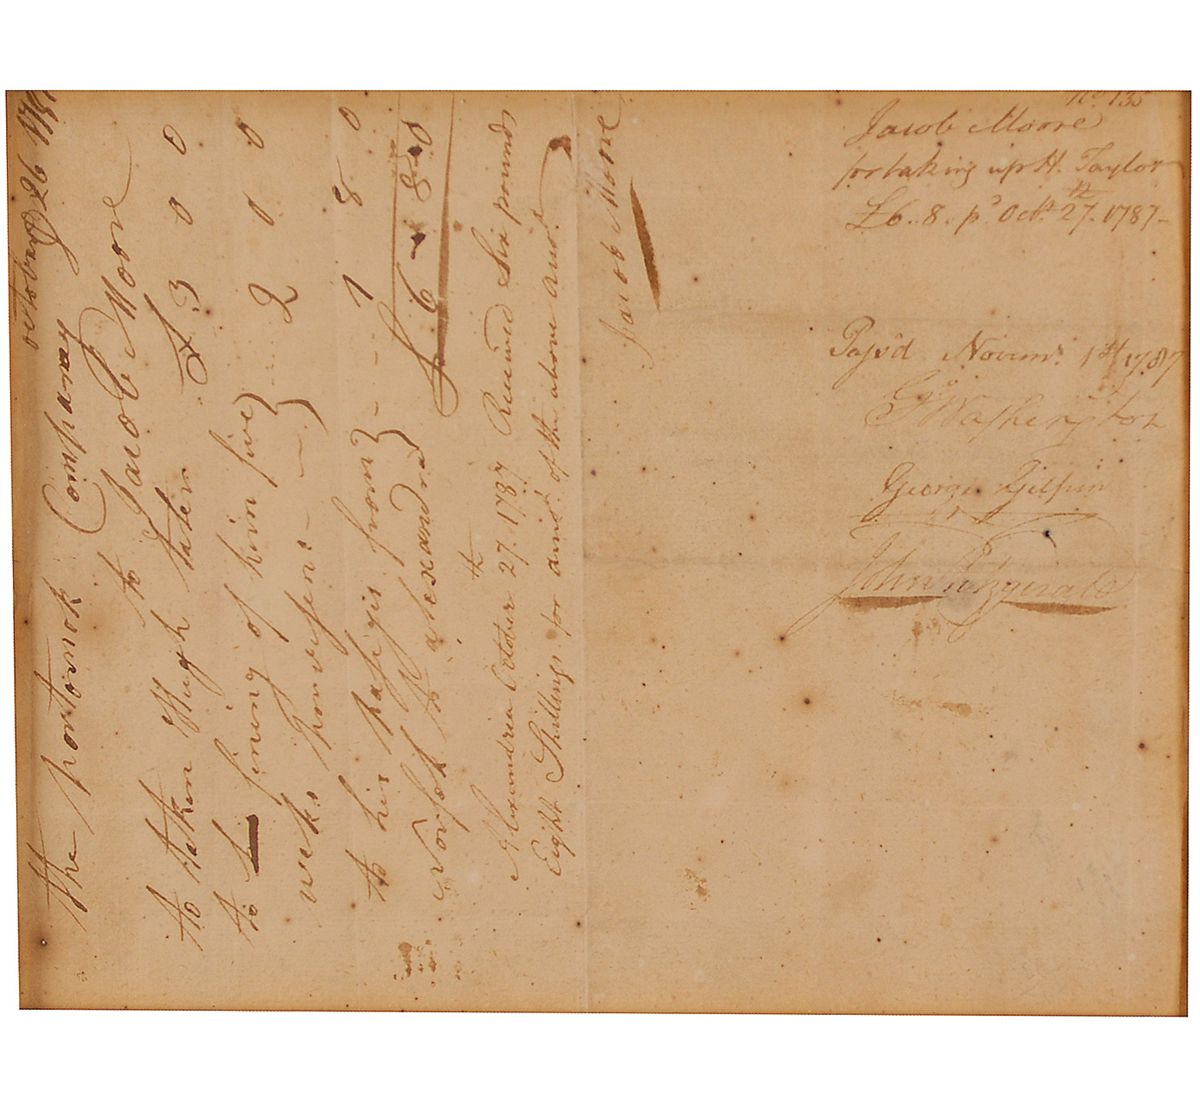 october 26 1787
the portomok Company
to Jacob Moore
to taken Hugh taler £ 3 0 0
to fining of him five }
weks provisions - - } 2 0 0
to his pasegis from }
Norfolk to alexandra } - - - 1 8 0
£ 6 - 8 - 0
Alexandria October 27.th 1787 Received Six pounds
Eight Shillings for amt. of the above amot.
Jacob Moore
No 135
Jacob Moore
for taking up H. Taylor
£6..8. pd Octr. 27.th 1787-
Pass'd Novemr. 1st 1787
Go Washington
George Gilpin
John Fitzgerald